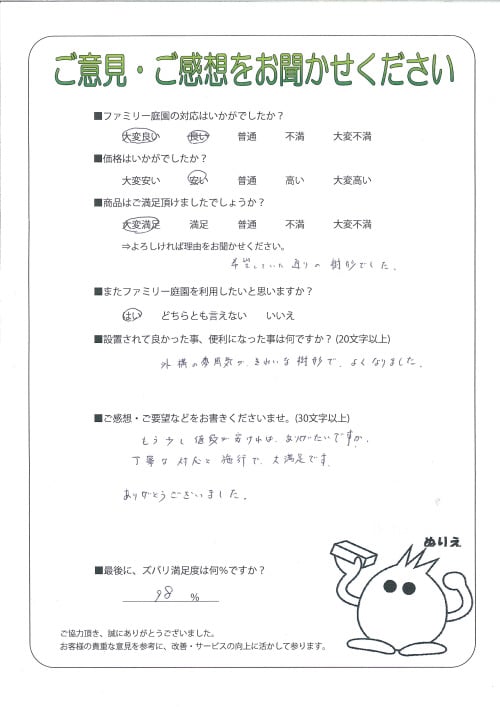 ご意見・ご感想をお聞かせください
■ファミリー庭園の対応はいかがでしたか？
大変良い 良い 普通 不満 大変不満
■価格はいかがでしたか？
大変安い 安い 普通 高い 大変高い
■商品はご満足頂けましたでしょうか？
大変満足 満足 普通 不満 大変不満
⇒よろしければ理由をお聞かせください。
希望していた通りの樹形でした。
■またファミリー庭園を利用したいと思いますか？
はい どちらとも言えない いいえ
■設置されて良かった事、便利になった事は何ですか？(20文字以上)
外構の雰囲気が、きれいな樹形で、よくなりました。
■ご感想・ご要望などをお書きくださいませ。(30文字以上)
もう少し値段が安ければ、ありがたいですが、
丁寧な対応と施行で、大満足です。
ありがとうございました。
ぬりえ
■最後に、ズバリ満足度は何%ですか？
98 %
ご協力頂き、誠にありがとうございました。
お客様の貴重な意見を参考に、改善・サービスの向上に活かして参ります。